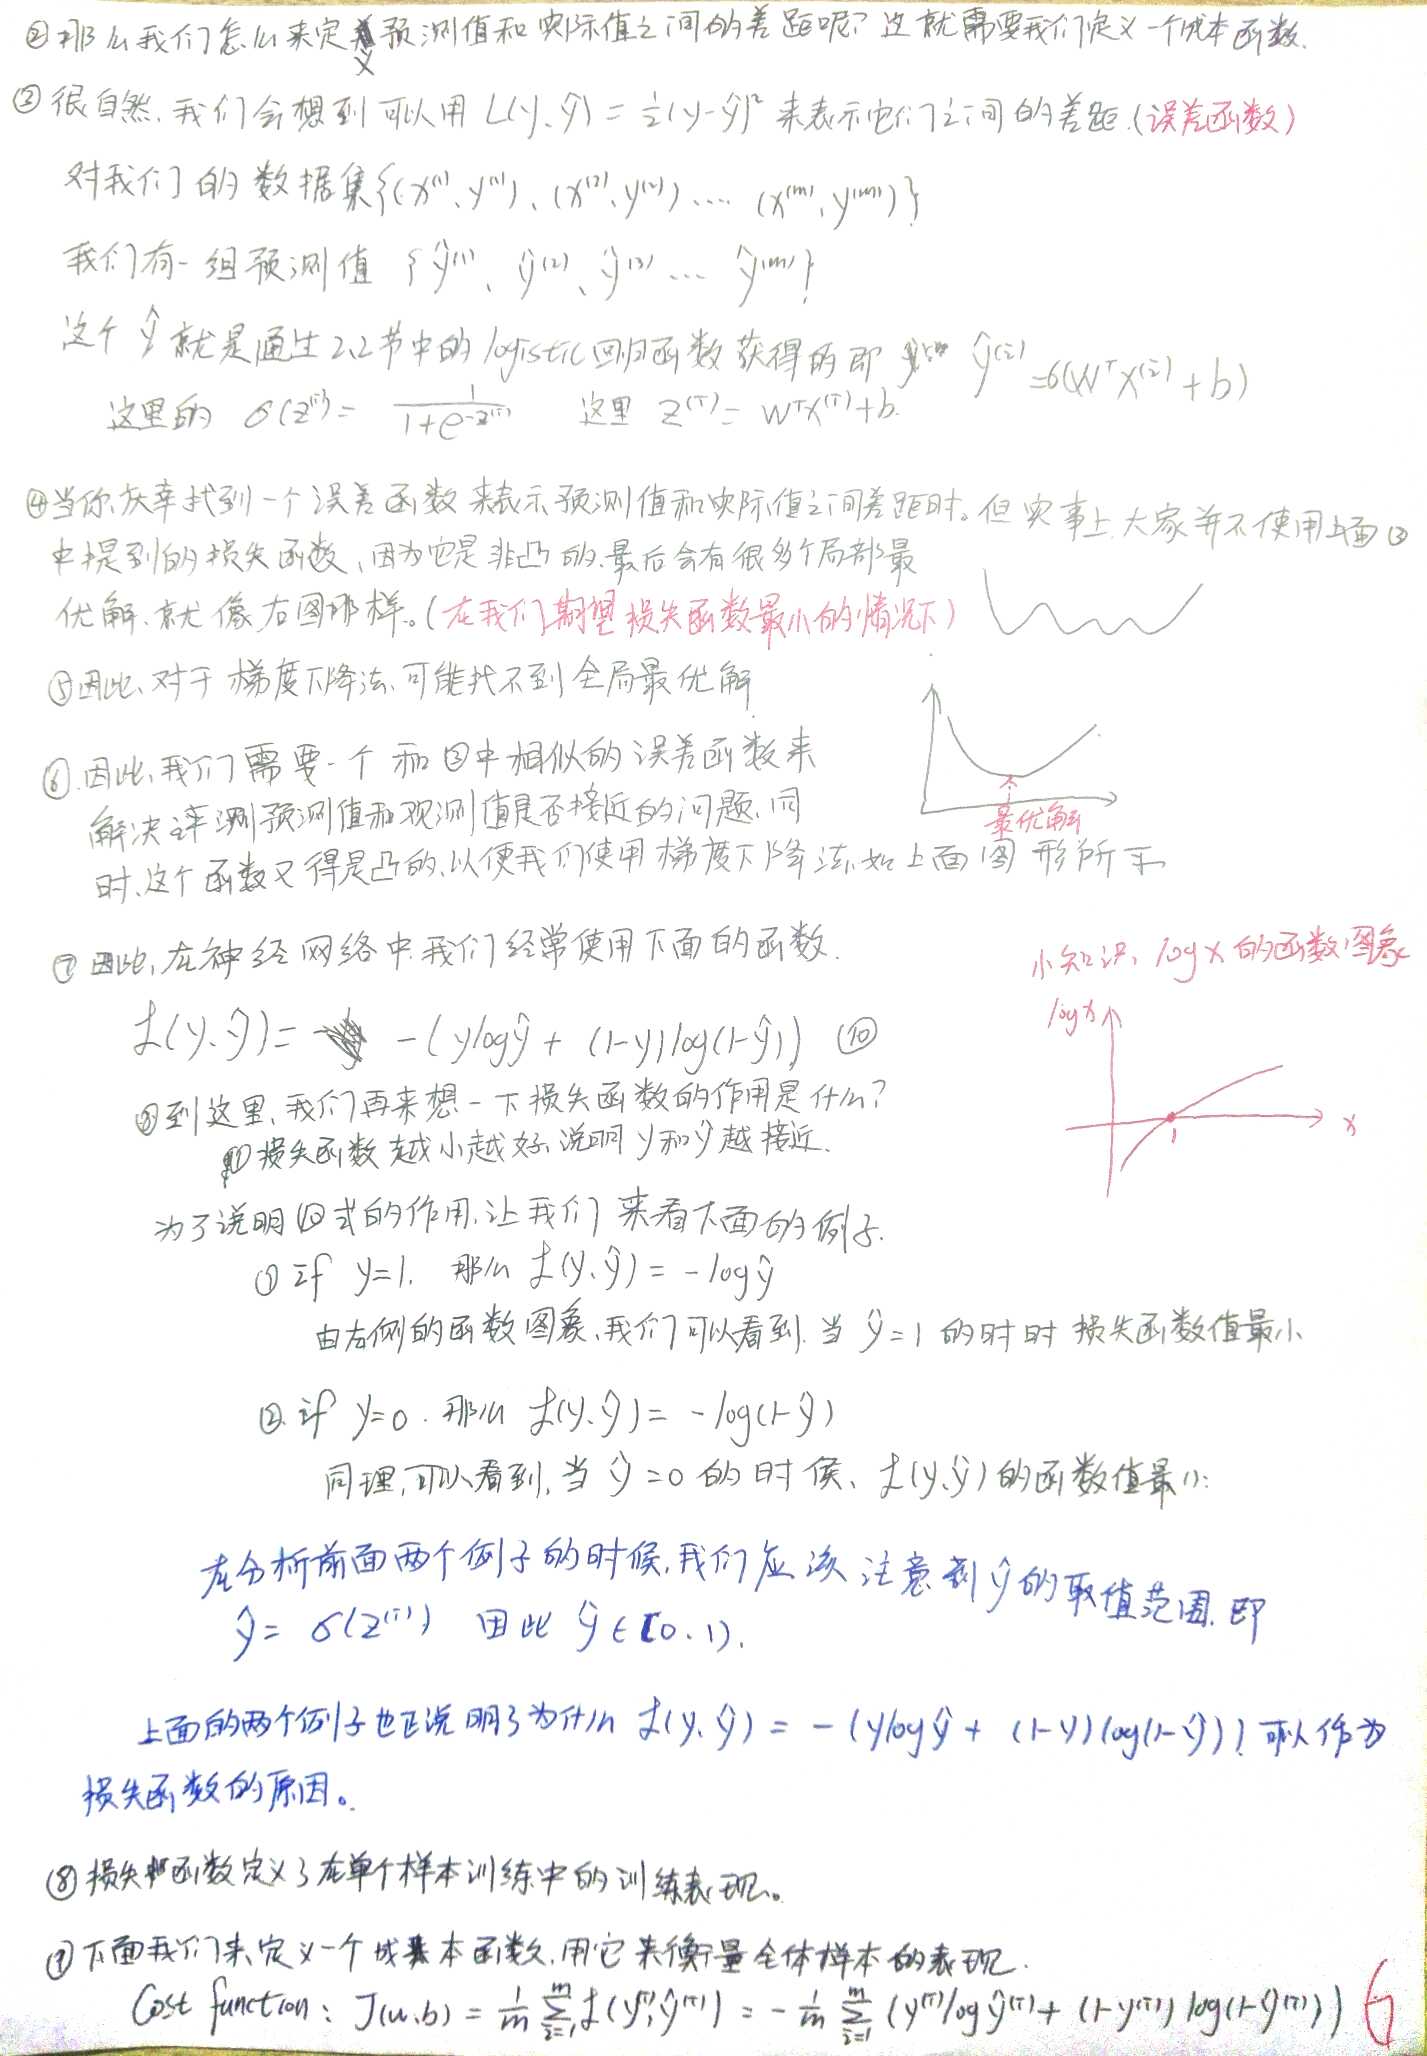 ②那么我们怎么来定义预测值和实际值之间的差距呢？这就需要我们定义一个成本函数.
③很自然.我们会想到可以用 L(y、ŷ) = ½(y-ŷ)² 来表示它们之间的差距.(误差函数)
对我们的数据集{(x⁽¹⁾、y⁽¹⁾)、(x⁽²⁾、y⁽²⁾)、... (x⁽ᵐ⁾、y⁽ᵐ⁾)}
我们有一组预测值 {ŷ⁽¹⁾、ŷ⁽²⁾、ŷ⁽³⁾... ŷ⁽ᵐ⁾}
这个 ŷ 就是通过2.2节中的logistic回归函数获得的即 ŷ⁽ⁱ⁾=σ(wᵀx⁽ⁱ⁾+b)
这里的 σ(z⁽ⁱ⁾)= 1/(1+e^(-z⁽ⁱ⁾)) 这里 z⁽ⁱ⁾= wᵀx⁽ⁱ⁾+b.
④当你庆幸找到一个误差函数来表示预测值和实际值之间差距时。但实事上.大家并不使用上面③
中提到的损失函数、因为它是非凸的.最后会有很多个局部最
优解.就像右图那样。(在我们期望损失函数最小的情况下)
⑤因此、对于梯度下降法、可能找不到全局最优解
⑥.因此、我们需要一个和③中相似的误差函数来
解决评测预测值和观测值是否接近的问题、同
时、这个函数又得是凸的、以便我们使用梯度下降法.如上面图形所示
最优解
⑦因此、在神经网络中.我们经常使用下面的函数.
ℒ(y、ŷ)= -(ylogŷ + (1-y)log(1-ŷ)) ⑩
小知识、logx的函数图象
logx
1
x
⑧到这里、我们再来想一下损失函数的作用是什么?
损失函数越小越好.说明y和ŷ越接近.
为了说明⑩式的作用.让我们来看下面的例子.
① if y=1. 那么 ℒ(y、ŷ) = -logŷ
由右侧的函数图象、我们可以看到.当 ŷ=1 的时时 损失函数值最小
② if y=0. 那么 ℒ(y、ŷ) = -log(1-ŷ)
同理,可以看到.当 ŷ=0 的时候、ℒ(y、ŷ)的函数值最小:
在分析前面两个例子的时候,我们应该注意到ŷ的取值范围.即
ŷ= σ(z⁽ⁱ⁾) 因此 ŷ∈[0.1).
上面的两个例子也正说明了为什么 ℒ(y、ŷ) = -(ylogŷ + (1-y)log(1-ŷ))可以作为
损失函数的原因。
⑧损失函数定义了在单个样本训练中的训练表现。
⑨下面我们来定义一个成本函数.用它来衡量全体样本的表现.
Cost function: J(w.b) = 1/m ∑ᵢ₌₁ᵐ ℒ(y⁽ⁱ⁾,ŷ⁽ⁱ⁾) = - 1/m ∑ᵢ₌₁ᵐ (y⁽ⁱ⁾logŷ⁽ⁱ⁾+ (1-y⁽ⁱ⁾)log(1-ŷ⁽ⁱ⁾))